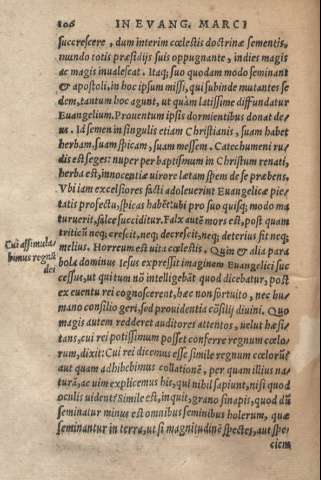 106 IN EVANG. MARCI
succrescere, dum interim cœlestis doctrinæ sementis,
mundo totis præsidijs suis oppugnante, indies magis
ac magis inualescat. Itaq; suo quodam modo seminant
& apostoli, in hoc ipsum missi, qui subinde mutantes se
dem, tantum hoc agunt, ut quàm latissime diffundatur
Euangelium. Prouentum ipsis dormientibus donat de/
us. Id semen in singulis etiam Christianis, suam habet
herbam, suam spicam, suam messem. Catechumeni ru/
dis est seges: nuper per baptismum in Christum renati,
herba est, innocentiæ uirore lætam spem de se præbens,
Vbi iam excelsiores facti adoleuerint Euangelicæ pie/
tatis profectu, spicas habēt: ubi pro suo quisq; modo ma
turuerit, falce succiditur. Falx autē mors est, post quam
triticū neq; crescit, neq; decrescit, neq; deterius fit neq;
melius. Horreum est uita cœlestis. Quin & alia para
Cui assimula/
bimus regnū
dei
bola dominus Iesus expressit imaginem Euangelici suc
cessus, ut qui tum nō intelligebāt quod dicebatur, post
ex euentu rei cognoscerent, hæc non fortuito, nec hu/
mano consilio geri, sed prouidentia cōsilij diuini. Quo
magis autem redderet auditores attentos, uelut hæsi/
tans, cui rei potissimum posset conferre regnum cœlo/
rum, dixit: Cui rei dicemus esse simile regnum cœlorū?
aut quam adhibebimus collationē, per quam illius na/
turā, ac uim explicemus his, qui nihil sapiunt, nisi quod
oculis uident? Simile est, inquit, grano sinapis, quod dū
seminatur minus est omnibus seminibus holerum, quæ
seminantur in terra, ut si magnitudinē spectes, aut spe/
ciem